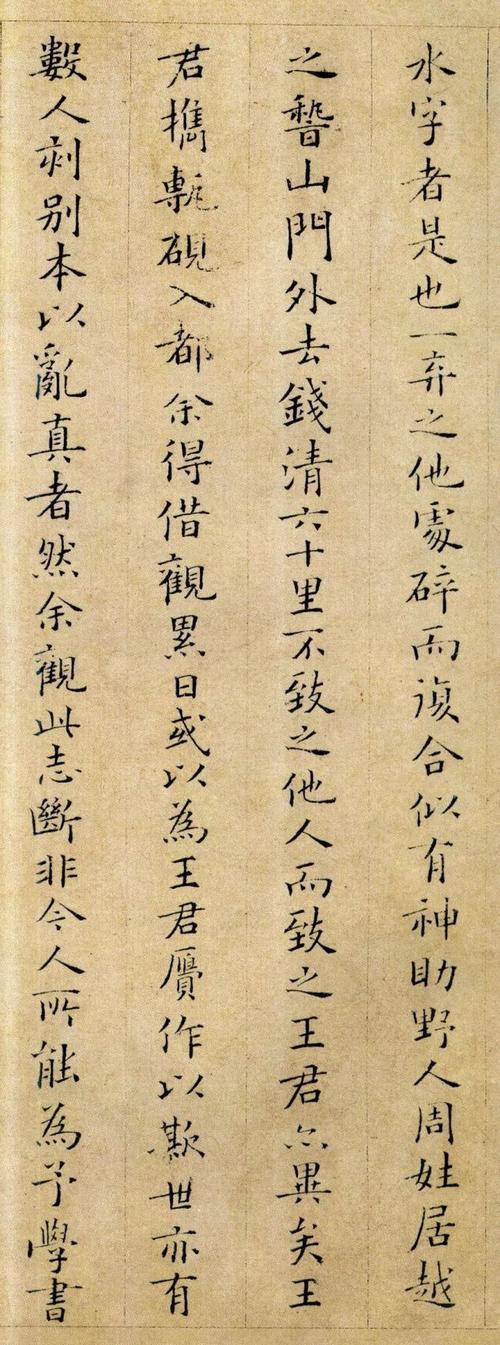 水字者是也一弃之他處碎而復合似有神助野人周姓居越
之稽山門外去錢清六十里不致之他人而致之王君亦異矣王
君攜甎硯入都余得借觀累日或以為王君贋作以欺世亦有
數人刻别本以亂真者然余觀此志斷非今人所能為予學書